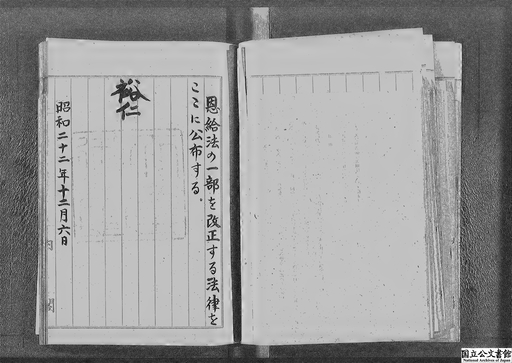 恩給法の一部を改正する法律を
ここに公布する。
裕仁
昭和二十二年十二月六日
内閣
国立公文書館
National Archives of Japan